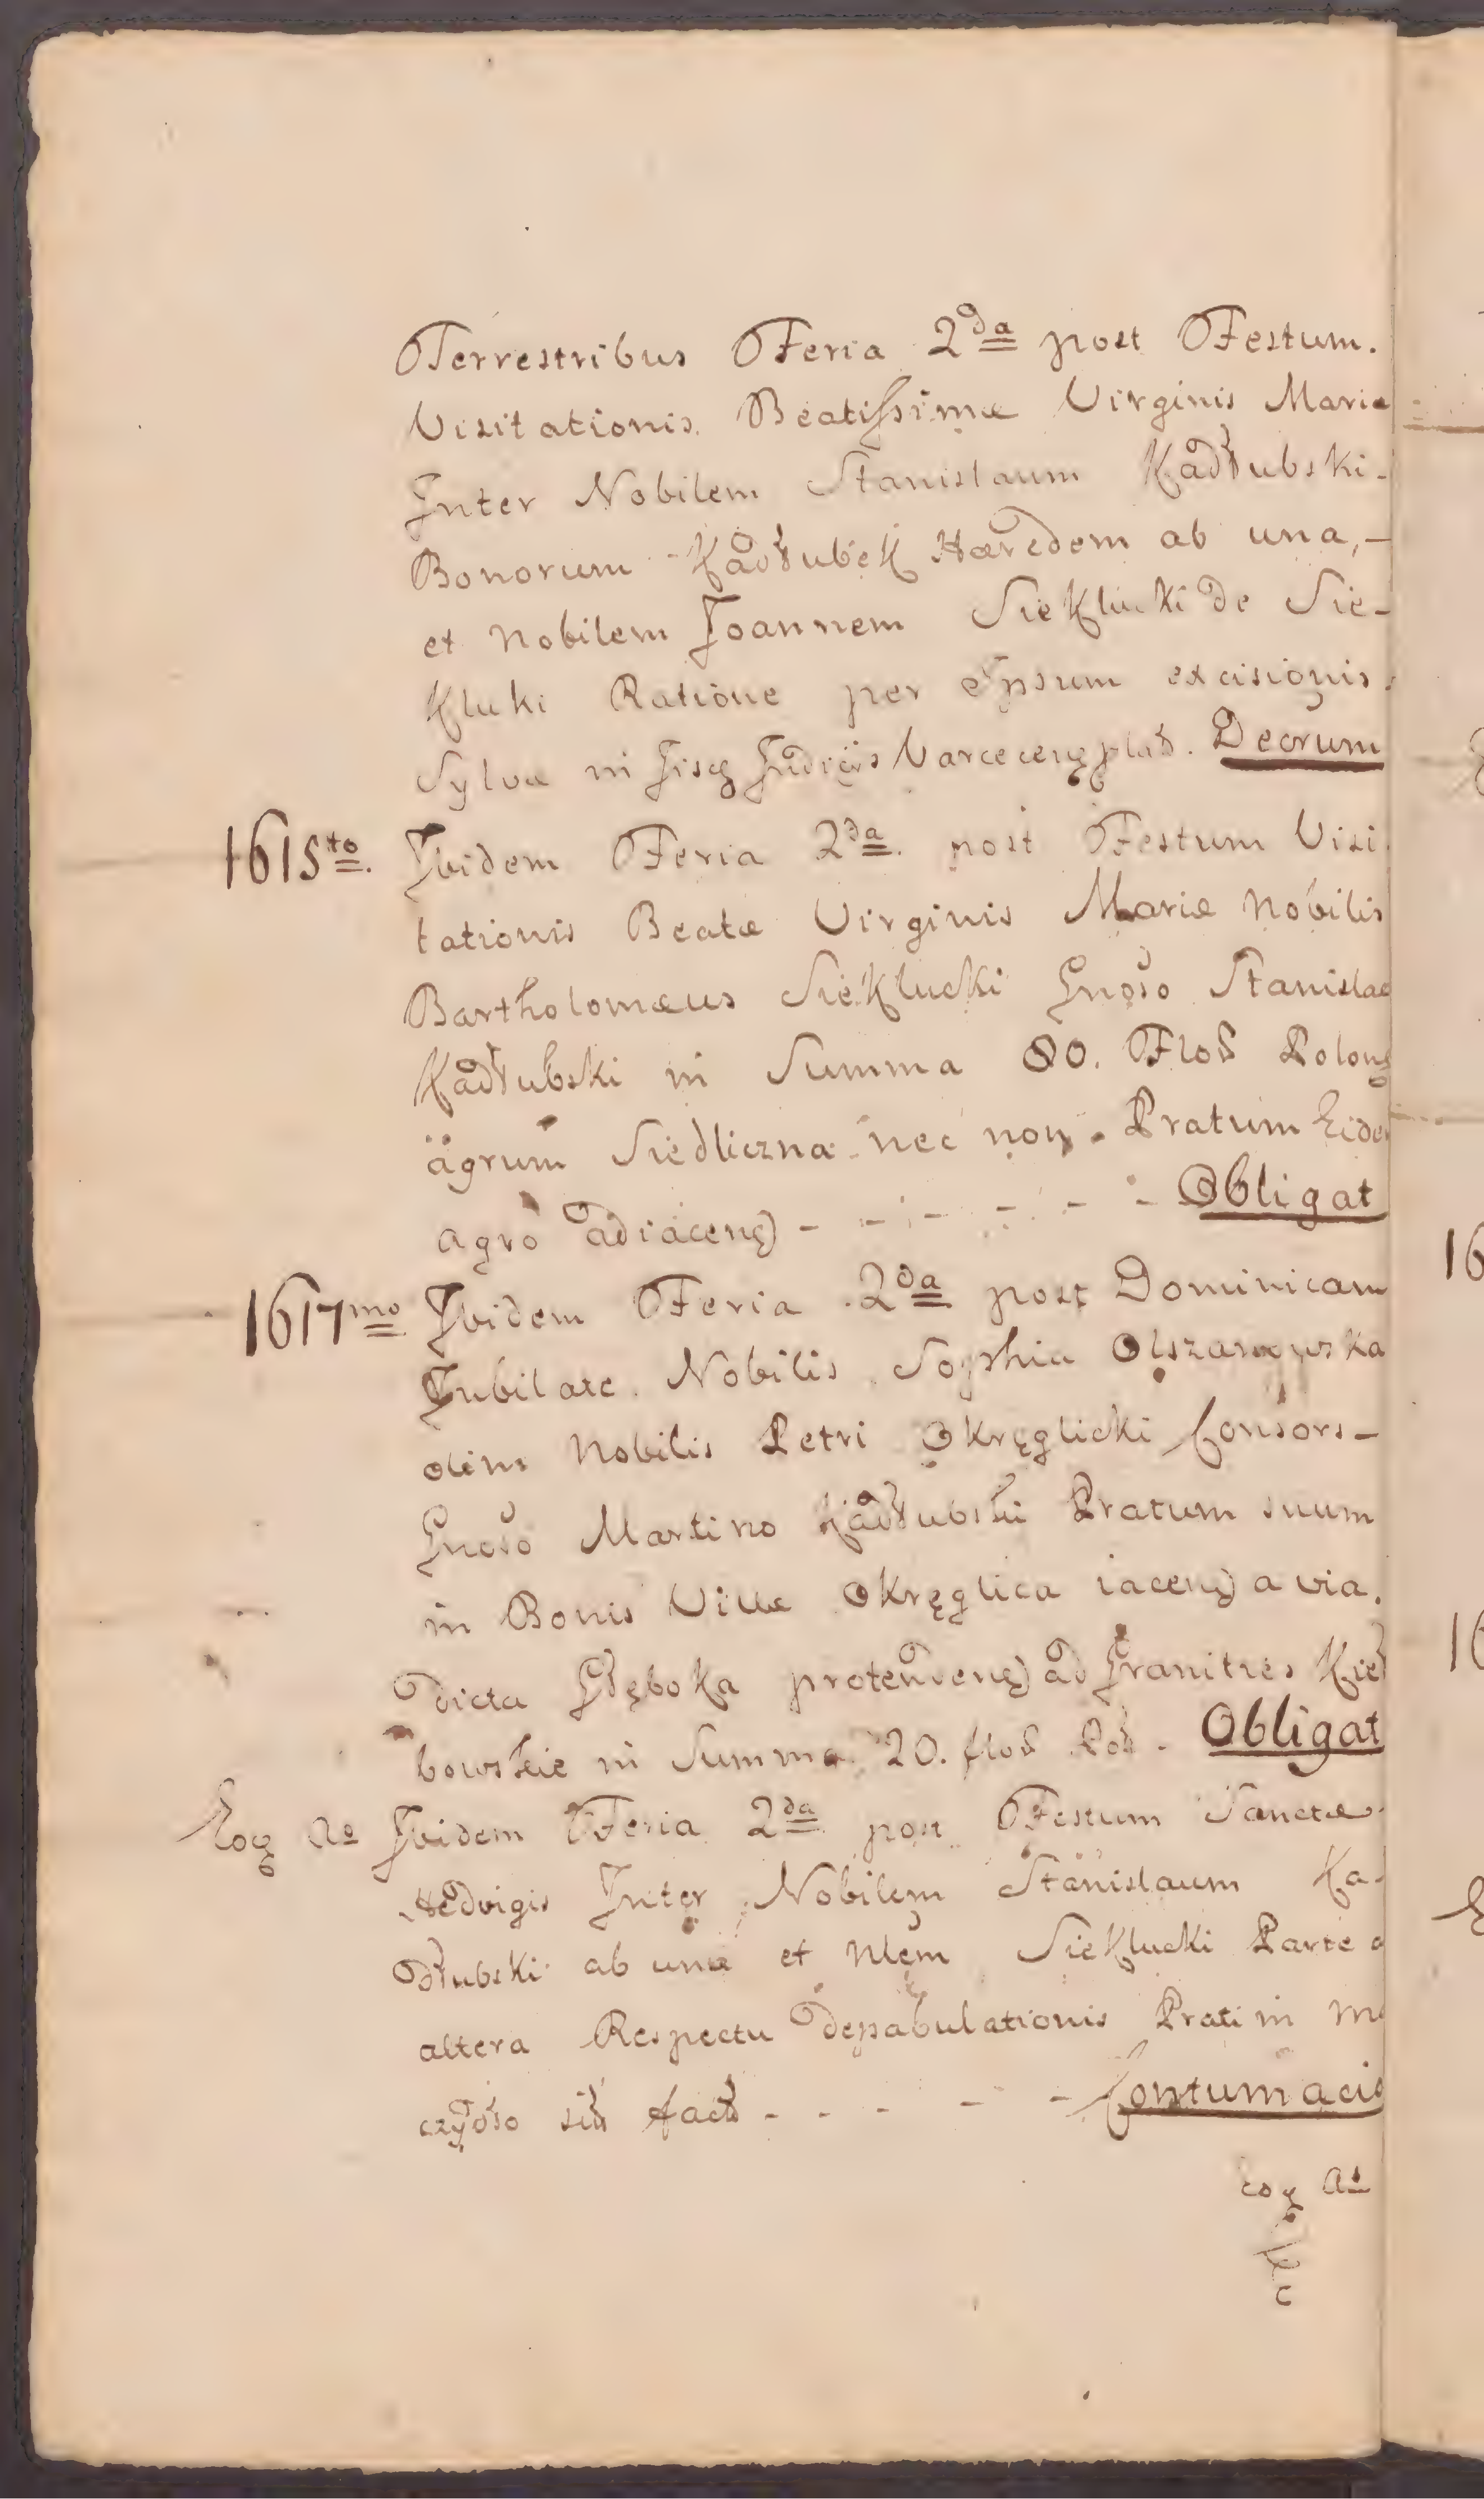 Terrestribus Feria 2da post Festum.
Visitationis Beatissimæ Virginis Mariæ
Inter Nobilem Stanislaum Kadłubski
Bonorum Kadłubek Hæredem ab una,-
et Nobilem Joannem Sieklucki de Sie-
kluki Ratione per Ipsum excisionis
Sylvæ in Judiciis Decrum
1615to. Ibidem Feria 2da post Festum Visi
tationis Beatæ Virginis Mariæ Nobilis
Bartholomæus Sieklucki Gnoso Stanislao
Kadłubski in Summa 80. Flor Polong
agrum Siedliczna nec non Pratum Eidem
agro adiacen - - - - - - Obligat
1617mo Ibidem Feria 2da post Dominicam
Jubilate Nobilis Sophia Olszamowska
olim Nobilis Petri Okręglicki Consors-
Gnoso Martino Kadłubski Pratum suum
in Bonis Villæ Okręglica iacen a via.
dicta Głęboka protenden ad Granities Kieł
bowskie in Summa 20. flor Pol. Obligat
Eog Ao Ibidem Feria 2da post Festum Sanctæ
Hedvigis Inter Nobilem Stanislaum Ka-
dłubski ab una et Nlem Sieklucki Parte a
altera Respectu depabulationis Prati in
sit fact - - - - - Contumacia
eog Ao